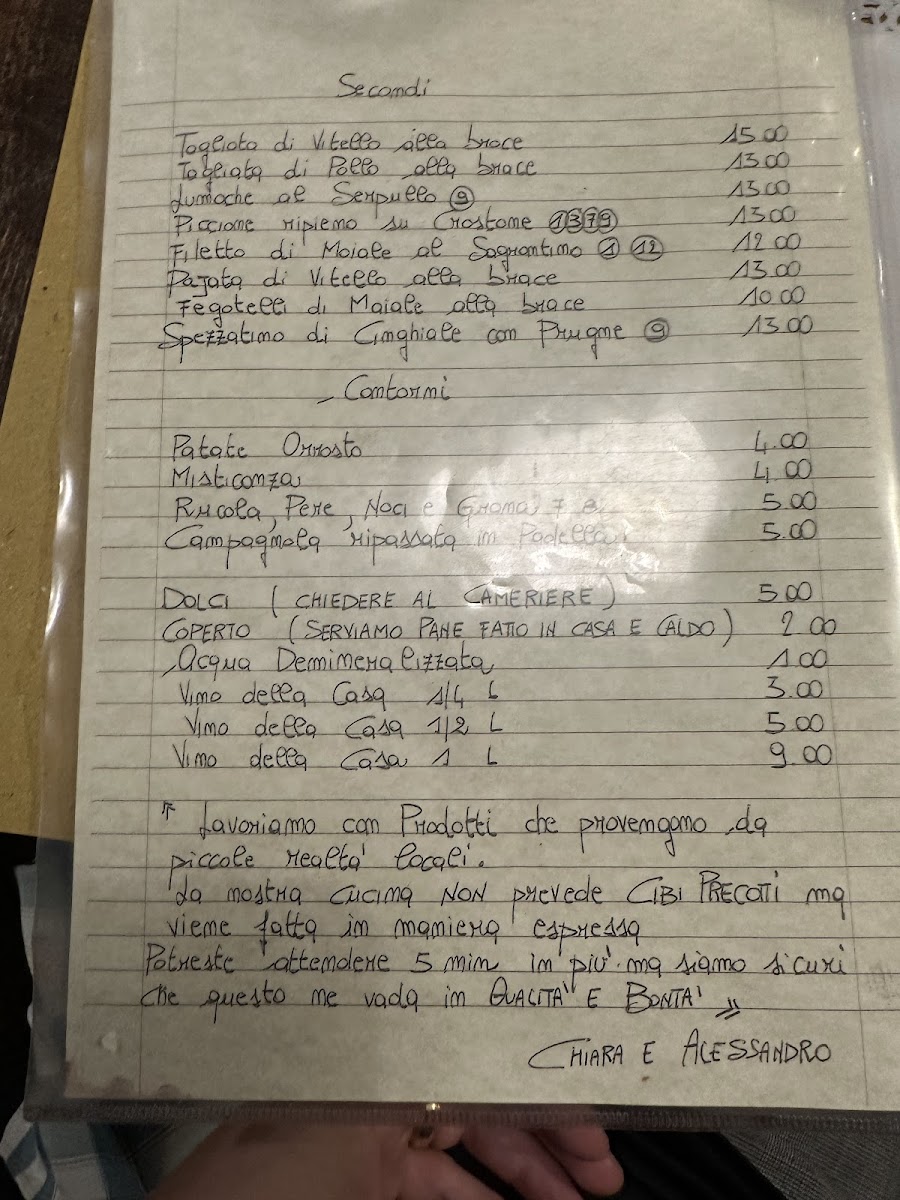 Secondi
Tagliata di Vitello alla brace 15.00
Tagliata di Pollo alla brace 13.00
Lumache al Serpullo ⑨ 13.00
Piccione ripieno su Crostone ①③⑦⑨ 13.00
Filetto di Maiale al Sagrantino ① ⑫ 12.00
Pajata di Vitello alla brace 13.00
Fegatelli di Maiale alla brace 10.00
Spezzatino di Cinghiale con Prugne ⑨ 13.00
Contorni
Patate Arrosto 4.00
Misticanza 4.00
Rucola, Pere, Noci e Grana, 7 8 5.00
Campagnola ripassata in Padella 5.00
DOLCI (CHIEDERE AL CAMERIERE) 5.00
COPERTO (SERVIAMO PANE FATTO IN CASA E CALDO) 2.00
Acqua Demineralizzata 1.00
Vino della Casa 1/4 L 3.00
Vino della Casa 1/2 L 5.00
Vino della Casa 1 L 9.00
Lavoriamo con Prodotti che provengono da
piccole realta' locali.
La nostra cucina NON prevede CIBI PRECOTTI ma
viene fatta in maniera espressa
Potreste attendere 5 min in piu' ma siamo sicuri
che questo ne vada in QUALITA' E BONTA' »
CHIARA E ALESSANDRO